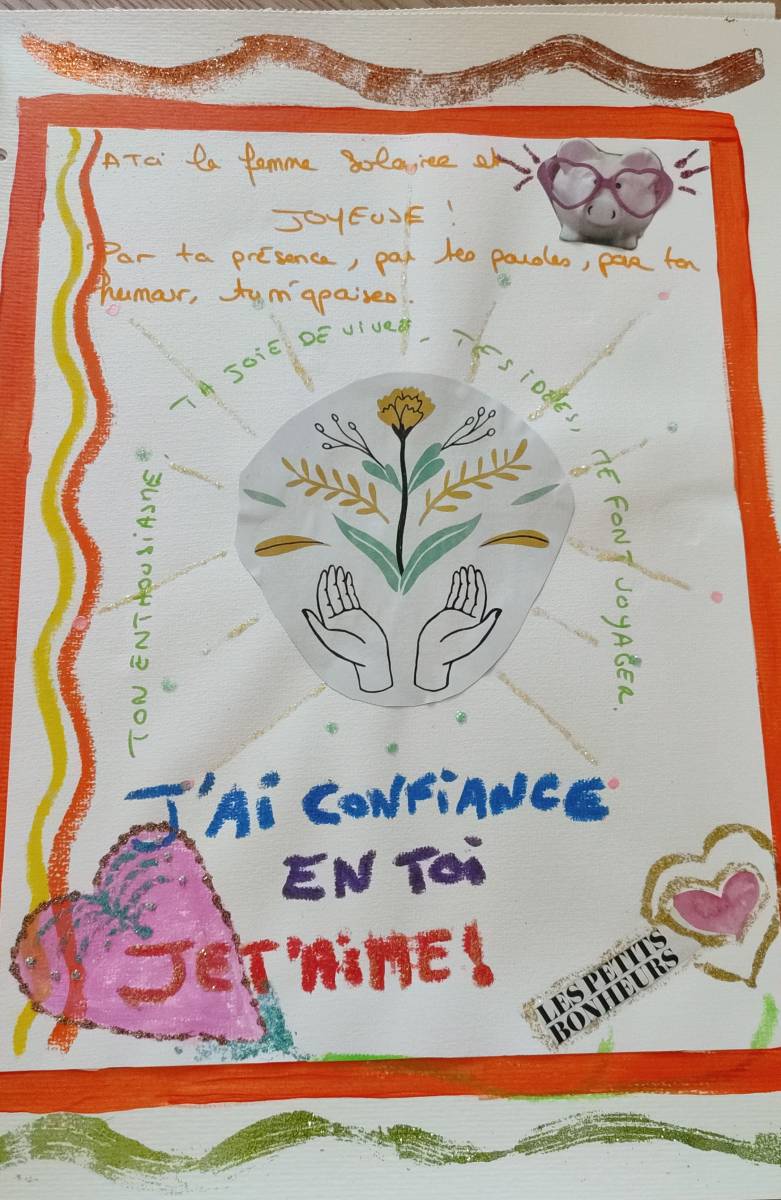 A Toi la femme Solaire et
JOYEUSE !
Par ta présence, par tes paroles, par ton
humour, tu m'apaises.
TA JOIE DE VIVRE, TES IDÉES, ME FONT VOYAGER.
TON ENTHOUSIASME.
J'AI CONFIANCE
EN TOI
JE T'AIME!
LES PETITS
BONHEURS